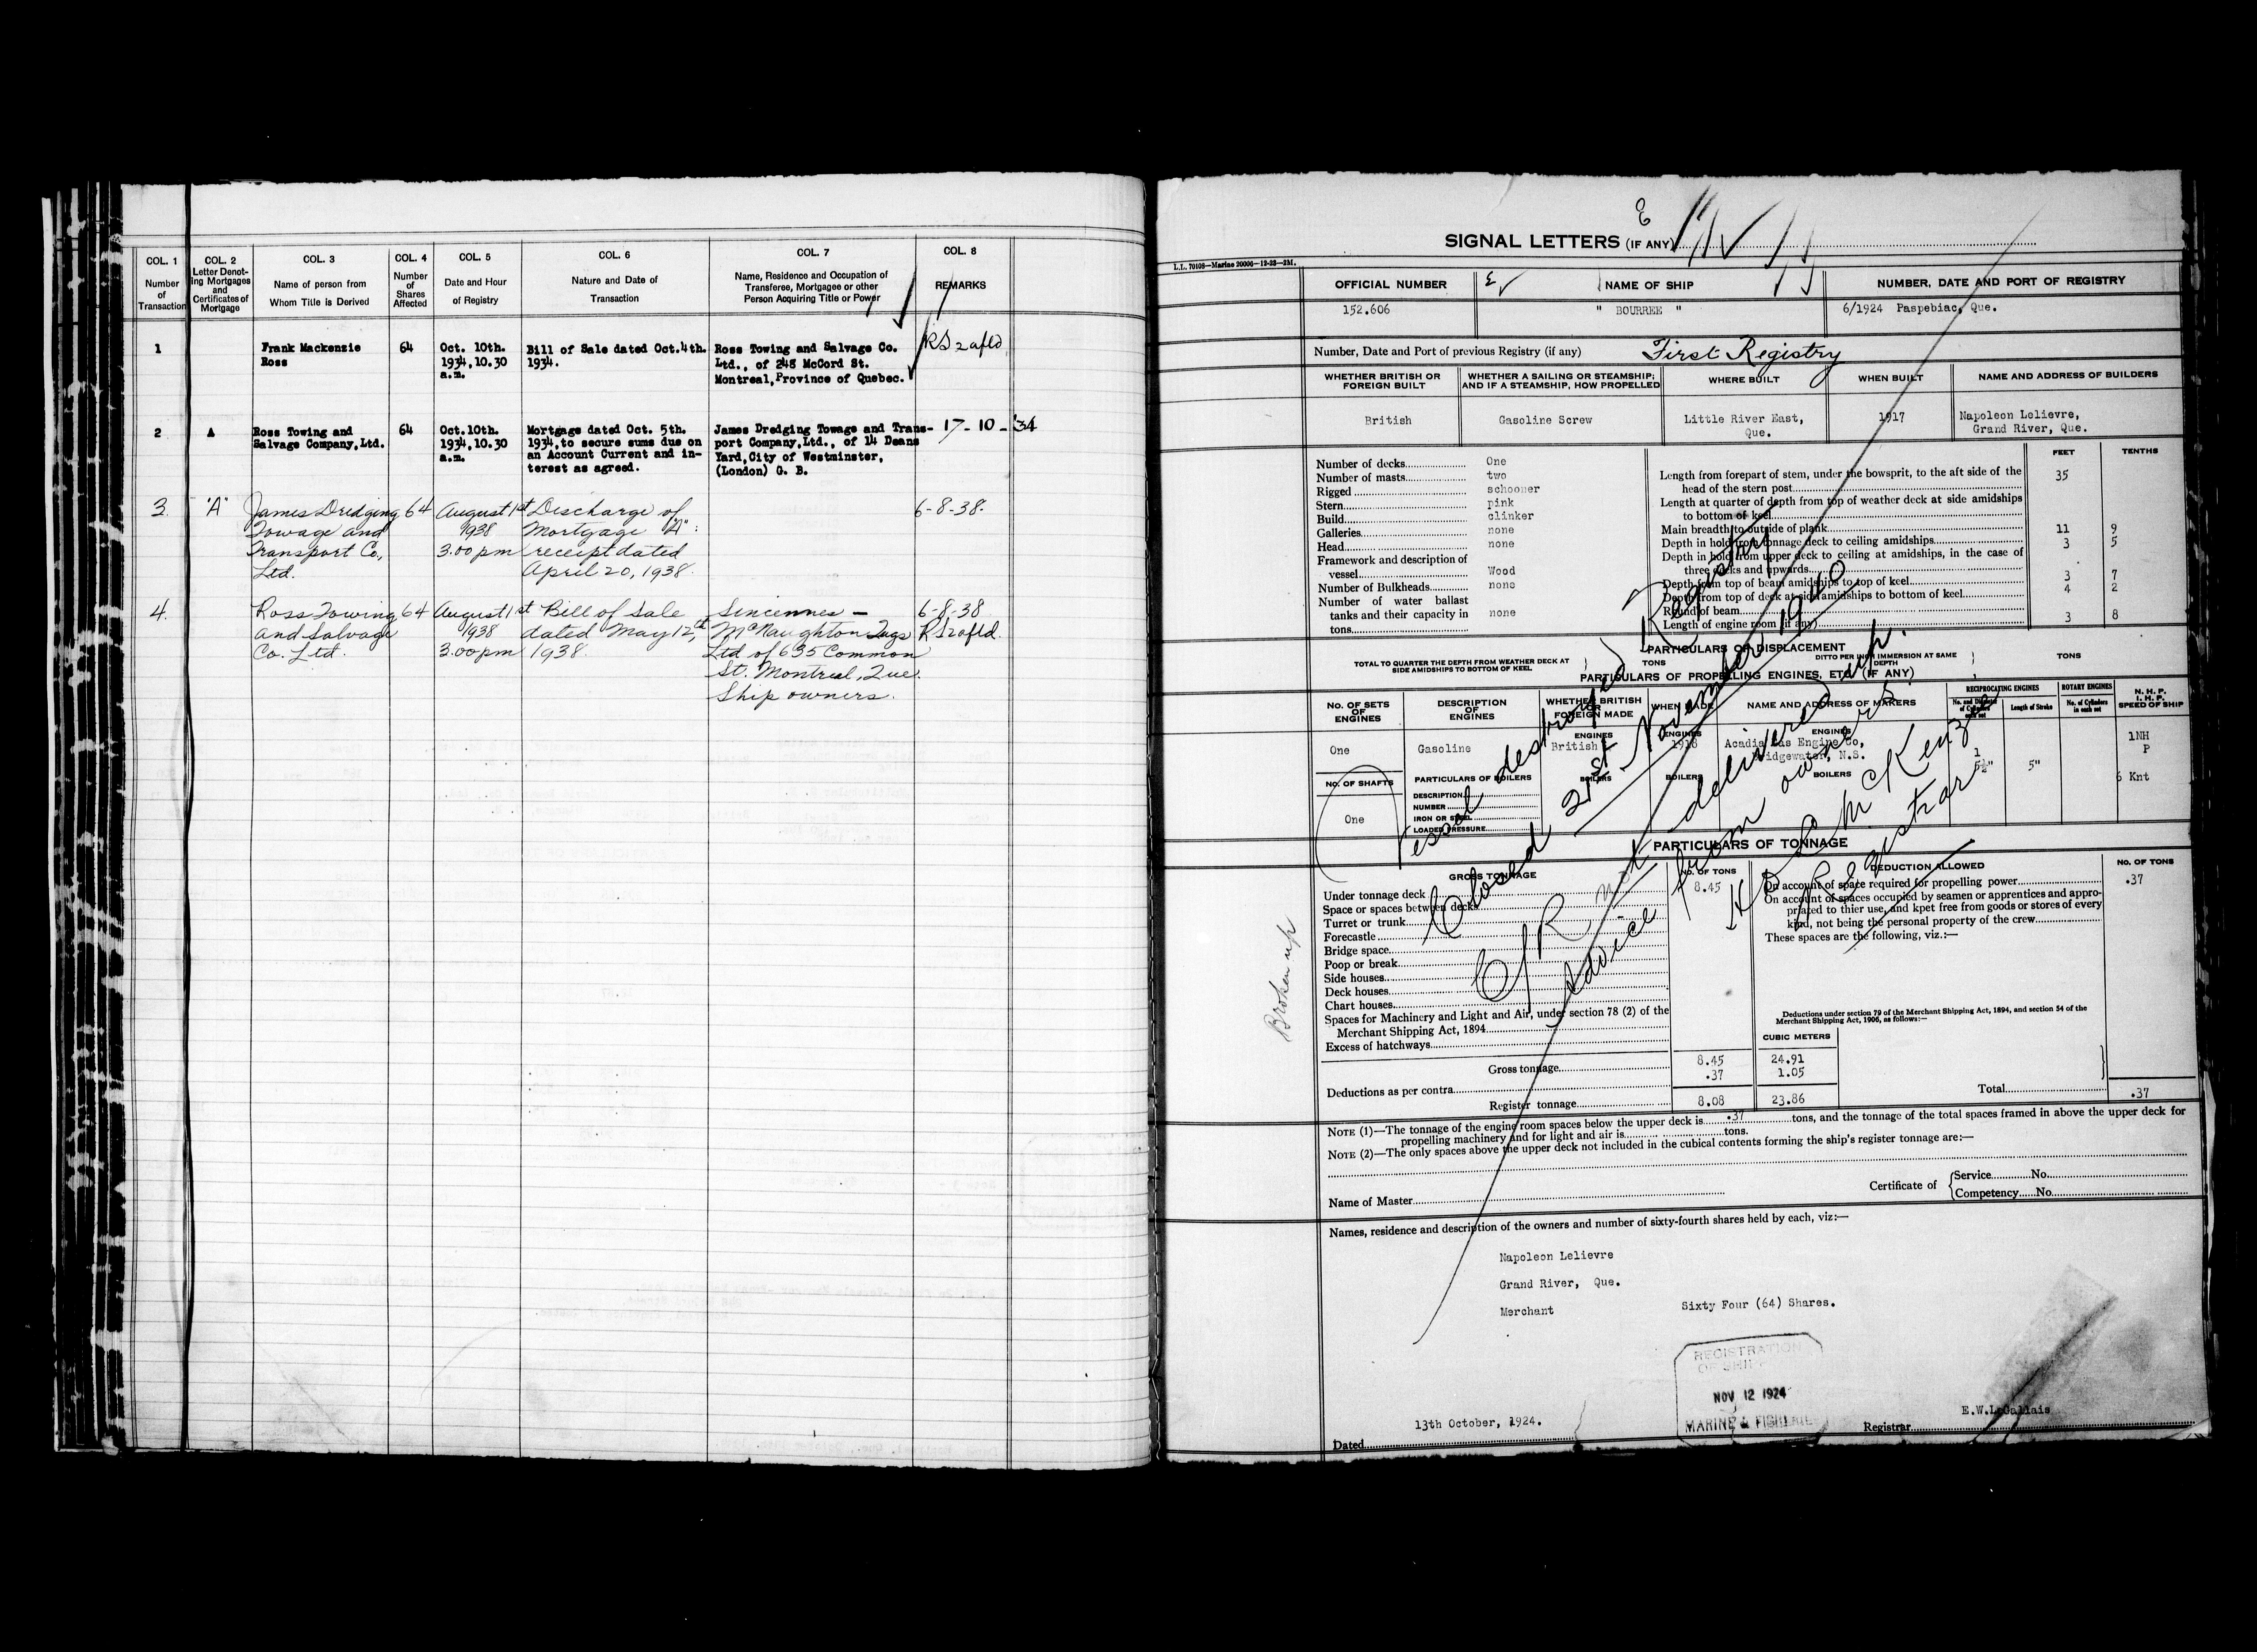 COL. 1
Number
of
Transaction
COL. 2
Letter Denot-
ing Mortgages
and
Certificates of
Mortgage
COL. 3
Name of person from
Whom Title is Derived
COL. 4
Number
of
Shares
Affected
COL. 5
Date and Hour
of Registry
COL. 6
Nature and Date of
Transaction
COL. 7
Name, Residence and Occupation of
Transferee, Mortgagee or other
Person Acquiring Title or Power
COL. 8
REMARKS
1
Frank Mackenzie
Ross
64
Oct. 10th.
1934, 10.30
a.m.
Bill of Sale dated Oct. 4th.
1934.
Ross Towing and Salvage Co.
Ltd., of 248 McCord St.
Montreal, Province of Quebec.
RS2afld
2
A
Ross Towing and
Salvage Company, Ltd.
64
Oct. 10th.
1934, 10.30
a.m.
Mortgage dated Oct. 5th.
1934, to secure sums due on
an Account Current and in-
terest as agreed.
James Dredging Towage and Trans-
port Company, Ltd., of 14 Deans
Yard, City of Westminster,
(London) G. B.
17-10-'34
3.
"A"
James Dredging
Towage and
Transport Co.,
Ltd.
64
August 1st
1938
3.00 pm
Discharge of
Mortgage "A":
receipt dated
April 20, 1938.
6-8-38.
4.
Ross Towing
and Salvage
Co. Ltd.
64
August 1st
1938
3.00 pm
Bill of Sale
dated May 12th,
1938.
Sincennes -
McNaughton Tugs
Ltd of 635 Common
St. Montreal, Que.
Ship owners.
6-8-38
RS2afld.
SIGNAL LETTERS (IF ANY)
L.L. 70108—Marine 20006—12-23—2M.
OFFICIAL NUMBER
152.606
NAME OF SHIP
" BOURREE "
NUMBER, DATE AND PORT OF REGISTRY
6/1924 Paspebiac, Que.
Number, Date and Port of previous Registry (if any) First Registry
WHETHER BRITISH OR
FOREIGN BUILT
British
WHETHER A SAILING OR STEAMSHIP;
AND IF A STEAMSHIP, HOW PROPELLED
Gasoline Screw
WHERE BUILT
Little River East,
Que.
WHEN BUILT
1917
NAME AND ADDRESS OF BUILDERS
Napoleon Lelievre,
Grand River, Que.
FEET
TENTHS
Number of decks One
Number of masts two
Rigged schooner
Stern pink
Build clinker
Galleries none
Head none
Framework and description of
vessel Wood
Number of Bulkheads none
Number of water ballast
tanks and their capacity in none
tons
Length from forepart of stem, under the bowsprit, to the aft side of the
head of the stern post 35
Length at quarter of depth from top of weather deck at side amidships
to bottom of keel
Main breadth to outside of plank 11 9
Depth in hold from tonnage deck to ceiling amidships 3 5
Depth in hold from upper deck to ceiling at amidships, in the case of
three decks and upwards
Depth from top of beam amidships to top of keel 3 7
Depth from top of deck at side amidships to bottom of keel 4 2
Round of beam
Length of engine room (if any) 3 8
PARTICULARS OF DISPLACEMENT
TOTAL TO QUARTER THE DEPTH FROM WEATHER DECK AT
SIDE AMIDSHIPS TO BOTTOM OF KEEL
TONS
DITTO PER INCH IMMERSION AT SAME
DEPTH
TONS
PARTICULARS OF PROPELLING ENGINES, ETC. (IF ANY)
NO. OF SETS
OF
ENGINES
One
DESCRIPTION
OF
ENGINES
Gasoline
WHETHER BRITISH
OR
FOREIGN MADE
ENGINES
British
BOILERS
WHEN MADE
ENGINES
1918
BOILERS
NAME AND ADDRESS OF MAKERS
ENGINES
Acadia Gas Engine Co,
Bridgewater, N.S.
BOILERS
RECIPROCATING ENGINES
No. and Diameter
of Cylinders
each set
1
5½"
Length of Stroke
5"
ROTARY ENGINES
No. of Cylinders
in each set
N. H. P.
I. H. P.
SPEED OF SHIP
1NH
P
6 Knt
NO. OF SHAFTS
One
PARTICULARS OF BOILERS
DESCRIPTION
NUMBER
IRON OR STEEL
LOADED PRESSURE
PARTICULARS OF TONNAGE
GROSS TONNAGE
NO. OF TONS
Under tonnage deck 8.45
Space or spaces between decks
Turret or trunk
Forecastle
Bridge space
Poop or break
Side houses
Deck houses
Chart houses
Spaces for Machinery and Light and Air, under section 78 (2) of the
Merchant Shipping Act, 1894
Excess of hatchways
Gross tonnage 8.45 24.91
Deductions as per contra .37 1.05
Register tonnage 8.08 23.86
CUBIC METERS
DEDUCTION ALLOWED
NO. OF TONS
On account of space required for propelling power .37
On account of spaces occupied by seamen or apprentices and appro-
priated to thier use, and kpet free from goods or stores of every
kind, not being the personal property of the crew
These spaces are the following, viz.:—
Deductions under section 79 of the Merchant Shipping Act, 1894, and section 54 of the
Merchant Shipping Act, 1906, as follows:—
Total .37
Vessel destroyed Registry
Closed 21st November 1940
C/R not delivered up.
Advice from owners
K L McKenzie
Registrar
Broken up
NOTE (1)—The tonnage of the engine room spaces below the upper deck is .37 tons, and the tonnage of the total spaces framed in above the upper deck for
propelling machinery and for light and air is tons.
NOTE (2)—The only spaces above the upper deck not included in the cubical contents forming the ship's register tonnage are:—
Name of Master
Certificate of
Service No.
Competency No.
Names, residence and description of the owners and number of sixty-fourth shares held by each, viz:—
Napoleon Lelievre
Grand River, Que.
Merchant Sixty Four (64) Shares.
REGISTRATION
OF SHIPPING
NOV 12 1924
MARINE & FISHERIES
Dated 13th October, 1924.
Registrar E.W.LeGallais